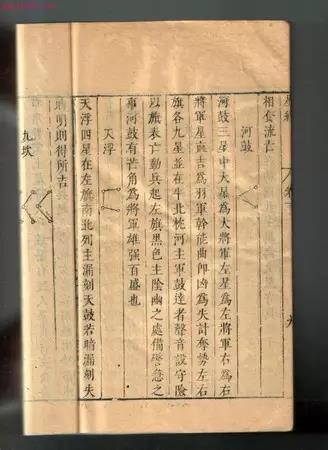 相去流吉
河鼓
河鼓三星中大星為大將軍左星為左將軍右為右
將軍星直吉為羽軍幹能曲即凶為失計奪勢左右
旗各九星並在牛北枕河主軍鼓達者聲音設守險
以旗表亡動兵起左旗黑色主陰幽之處備警急之
事河鼓有芒角為將軍雄强百盛也
天浮
天浮四星在左旗南北列主漏刻天鼓若暗漏刻失
時明則得所吉
九坎